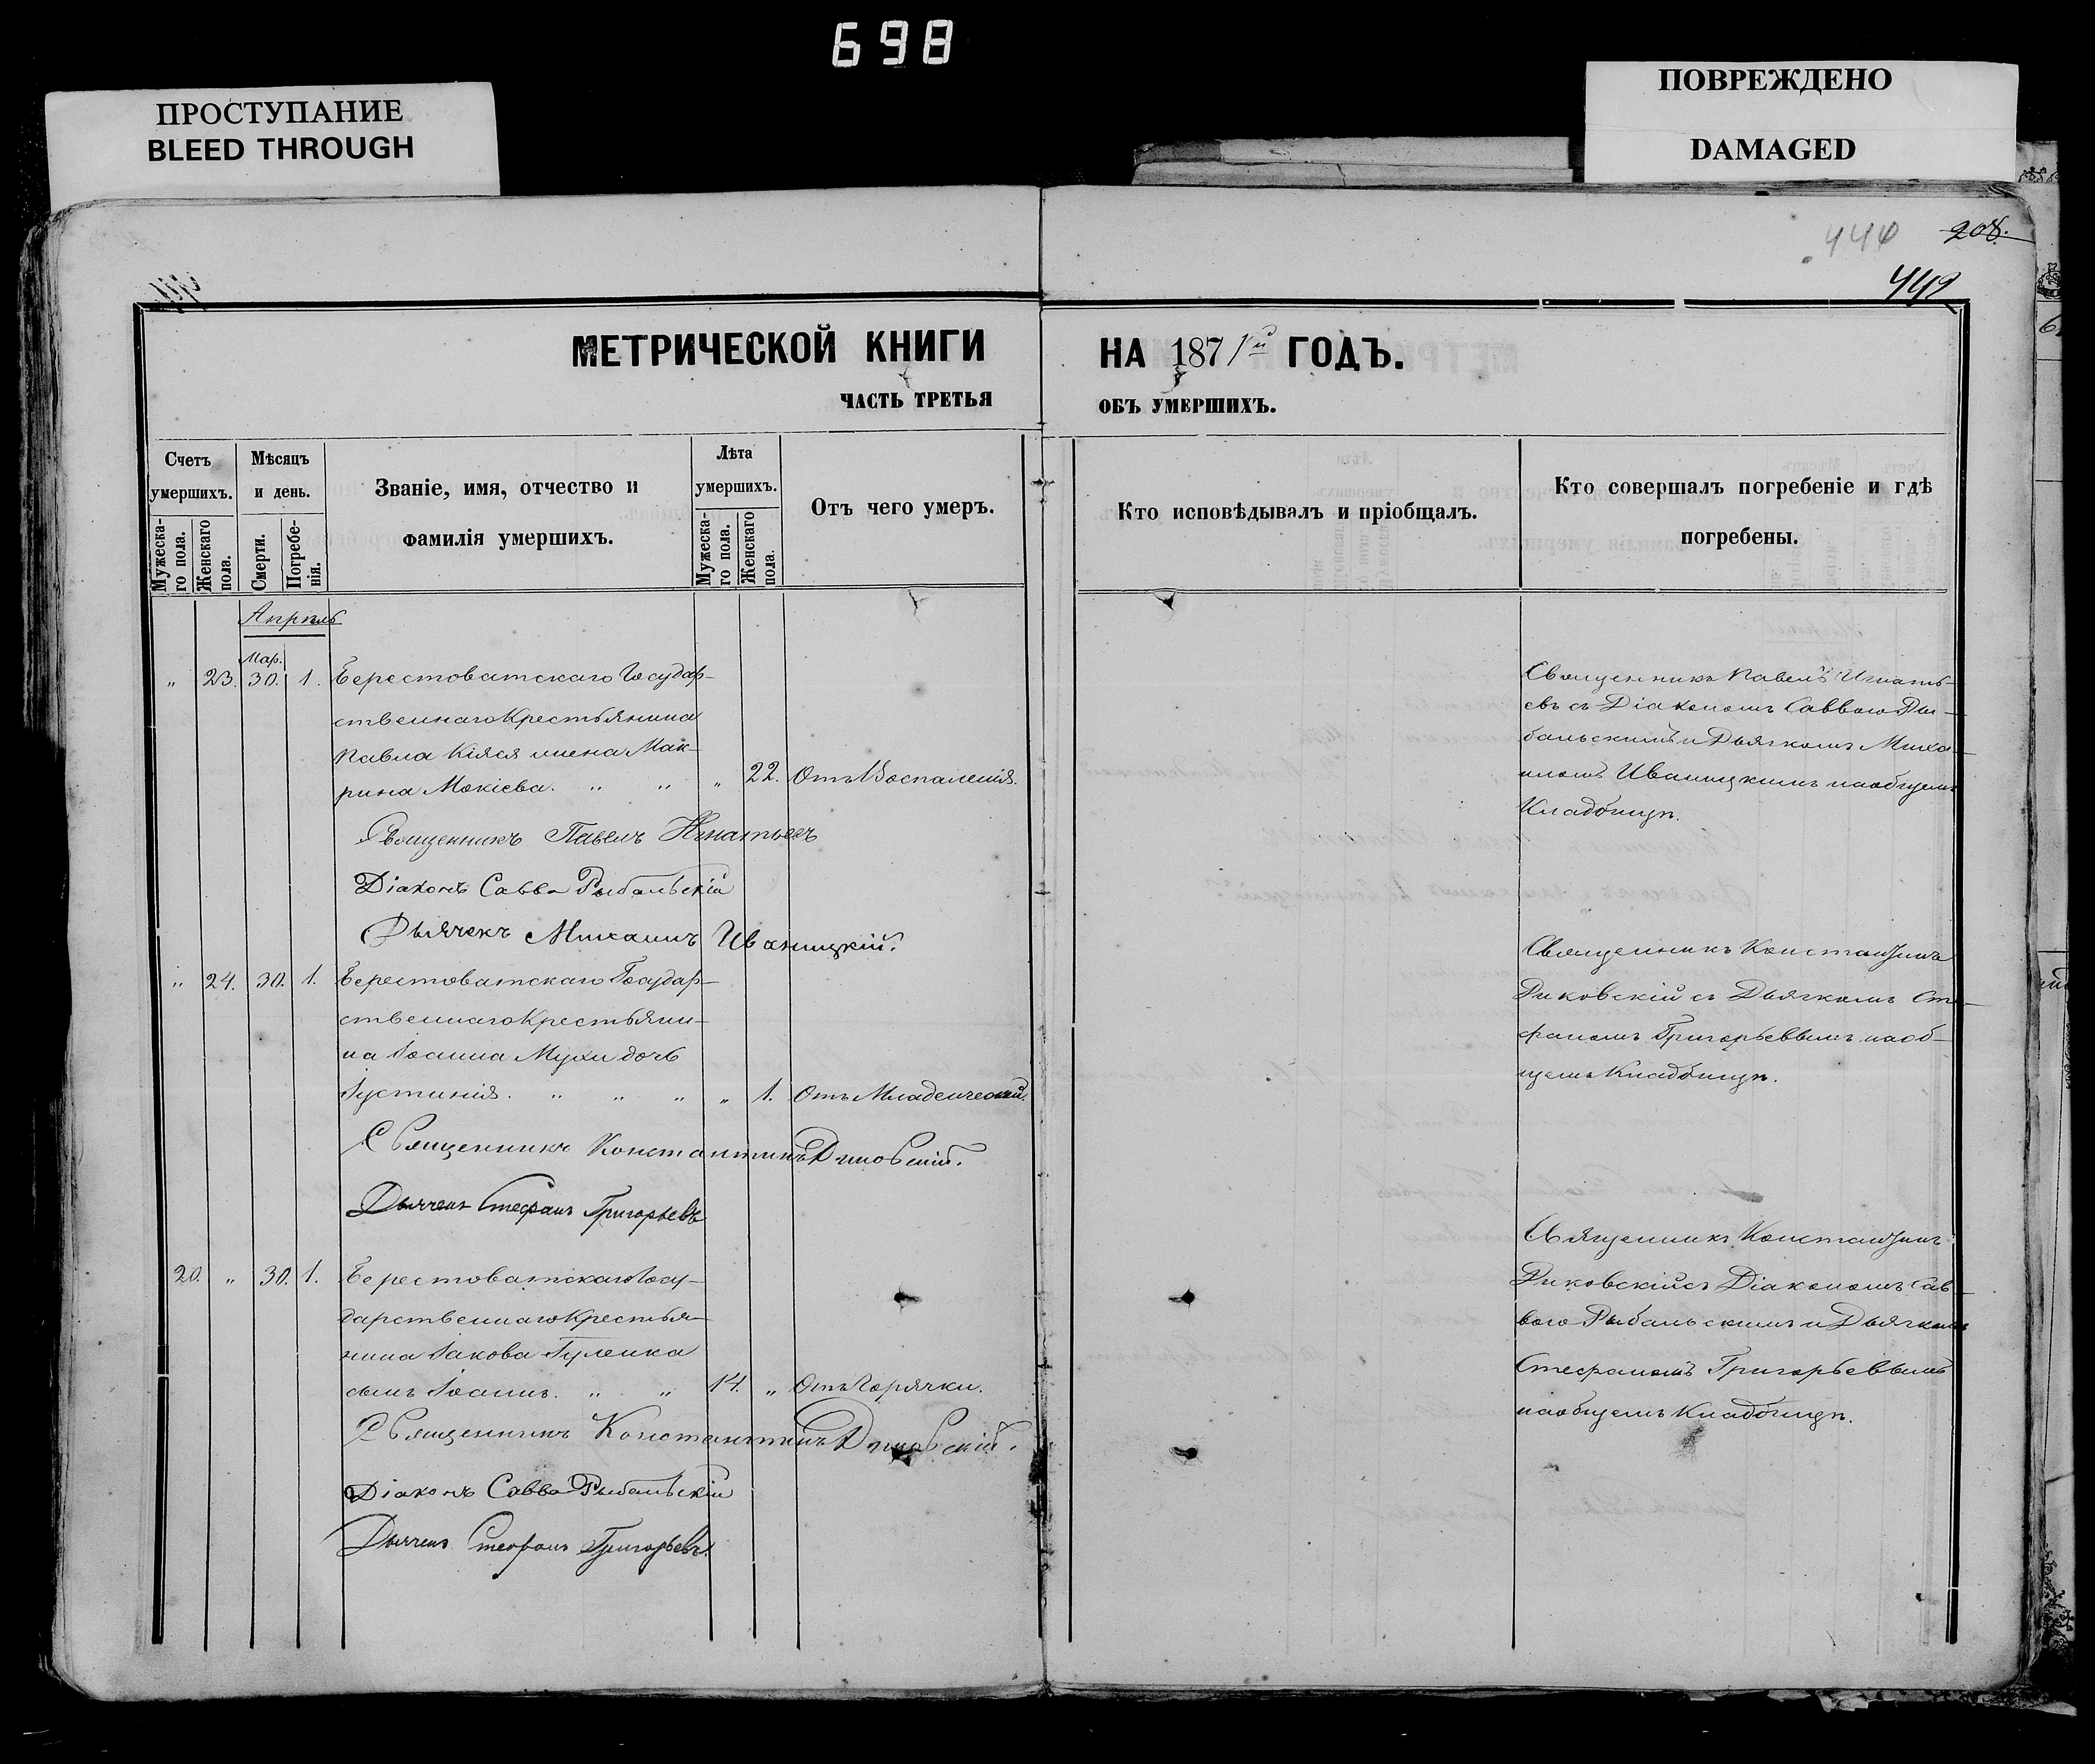 698
ПРОСТУПАНИЕ
BLEED THROUGH
ПОВРЕЖДЕНО
DAMAGED
208.
440
МЕТРИЧЕСКОЙ КНИГИ НА 1871й ГОДЪ.
ЧАСТЬ ТРЕТЬЯ ОБЪ УМЕРШИХЪ.
Счетъ умершихъ.
Мужеска-го пола.
Женскаго пола.
Мѣсяцъ и день.
Смерти.
Погребе-нія.
Званіе, имя, отчество и
фамилія умершихъ.
Лѣта умершихъ.
Мужеска-го пола.
Женскаго пола.
Отъ чего умеръ.
Кто исповѣдывалъ и пріобщалъ.
Кто совершалъ погребеніе и гдѣ
погребены.
Апрель
Мар.
„ 23. 30. 1. Берестоватскаго Государ-
ственнаго Крестьянина
Павла Кіяся жена Мак-
рина Мокіева. „ „ „ 22. Отъ Воспаленія.
Священникъ Павелъ Игнатьевъ
Діаконъ Савва Рыбальскій
Дьячекъ Михаилъ Иваницкій.
Священникъ Павелъ Игнать-
евъ съ Діакономъ Саввою Ры-
бальскимъ и Дьячкомъ Миха-
иломъ Иваницкимъ на общемъ
Кладбищѣ.
„ 24. 30. 1. Берестоватскаго Государ-
ственнаго Крестьяни-
на Іоанна Мухи дочь
Іустинія. „ „ „ „ 1. Отъ Младенческой.
Священникъ Константинъ
Дьячекъ Стефанъ Григорьевъ
Священникъ Константинъ
съ Дьячкомъ Сте-
фаномъ Григорьевымъ на об-
щемъ Кладбищѣ.
20. „ 30. 1. Берестоватскаго Госу-
дарственнаго Крестья-
нина Іакова Гуленка
сынъ Іоаннъ. „ „ 14. „ Отъ Горячки.
Священникъ Константинъ
Діаконъ Савва Рыбальскій
Дьячекъ Стефанъ Григорьевъ.
Священникъ Константинъ
съ Діакономъ Сав-
вою Рыбальскимъ и Дьячкомъ
Стефаномъ Григорьевымъ
на общемъ Кладбищѣ.